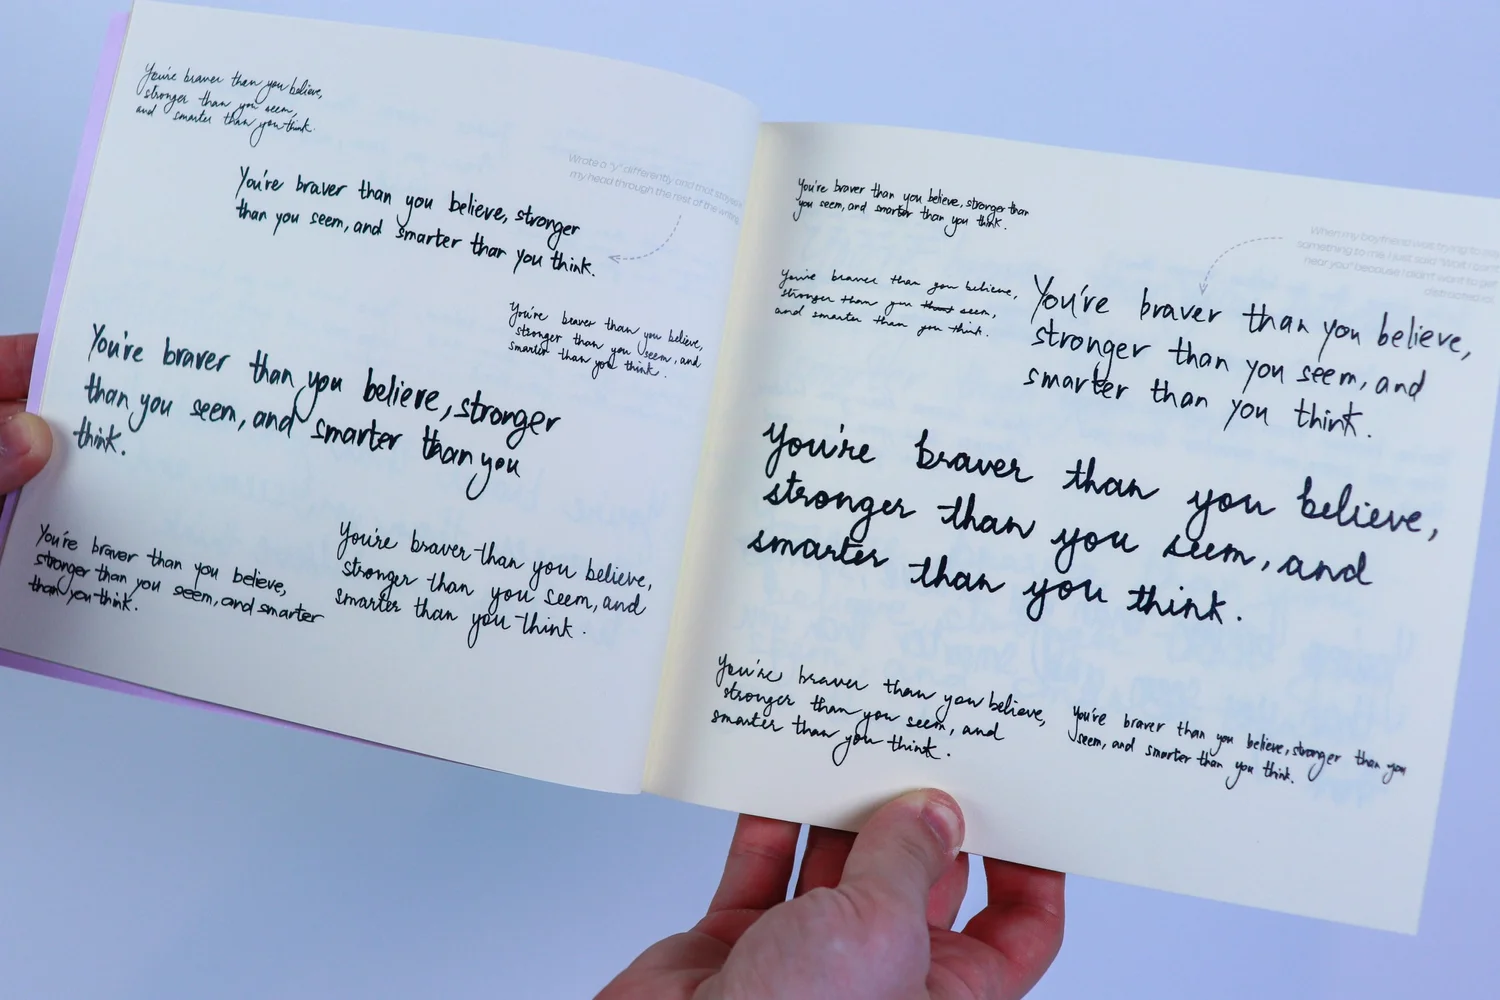 You're braver than you believe,
stronger than you seem,
and smarter than you think.
Wrote a "y" differently and that stayed in
my head through the rest of the writing
You're braver than you believe, stronger
than you seem, and smarter than you think.
You're braver than you believe,
stronger than you seem, and
smarter than you think.
You're braver than you believe, stronger
than you seem, and smarter than you
think.
You're braver than you believe,
stronger than you seem, and smarter
than you think.
You're braver than you believe,
stronger than you seem, and
smarter than you think.
You're braver than you believe, stronger than
you seem, and smarter than you think.
When my boyfriend was trying to
something to me, I just said "Wait I can't
hear you" because I didn't want to get
distracted lol
You're braver than you believe,
stronger than you than seem,
and smarter than you think.
You're braver than you believe,
stronger than you seem, and
smarter than you think.
You're braver than you believe,
stronger than you seem, and
smarter than you think.
You're braver than you believe,
stronger than you seem, and
smarter than you think.
You're braver than you believe, stronger than you
seem, and smarter than you think.